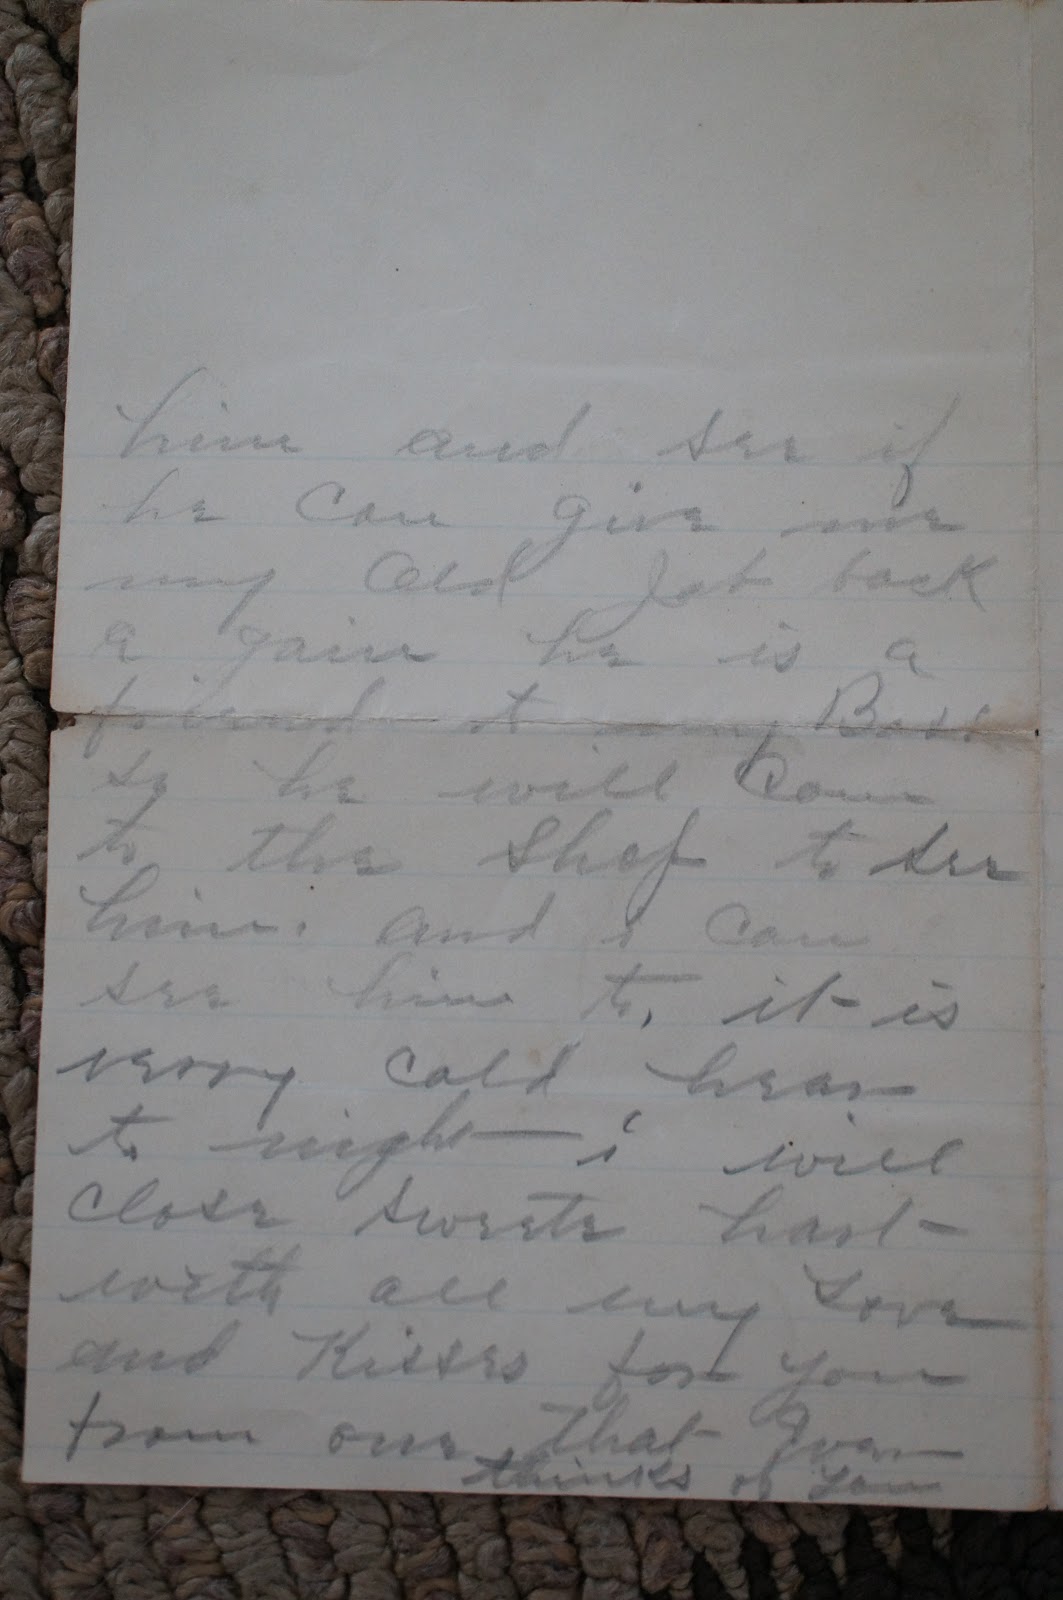 him and see if
he can give me
my old Job back
a gain he is a
friend to my Boss
so he will Come
to the Shop to see
him. and i can
see him to, it is
verry cold hear
to night i will
close sweete hart
with all my Love
and Kisses for you
from one that Ever
thinks of you